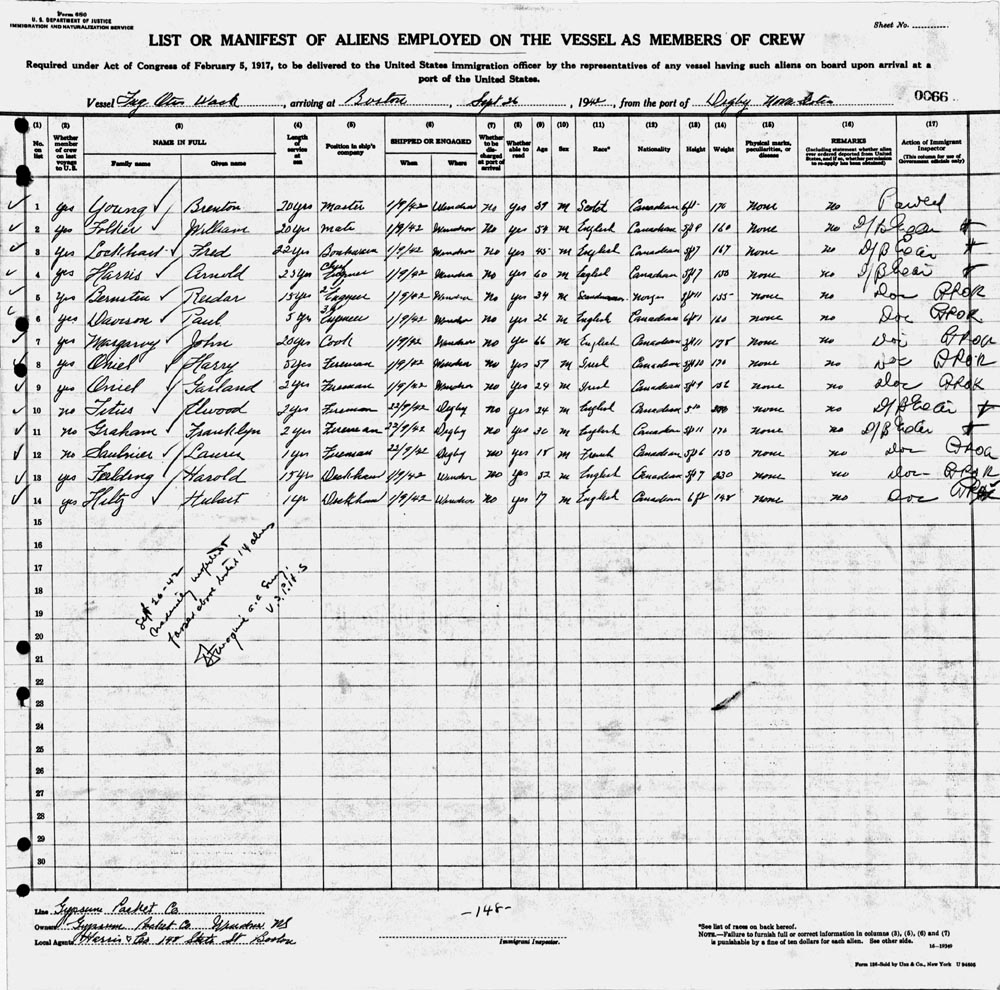 Form 680
U. S. DEPARTMENT OF JUSTICE
IMMIGRATION AND NATURALIZATION SERVICE
Sheet No.
LIST OR MANIFEST OF ALIENS EMPLOYED ON THE VESSEL AS MEMBERS OF CREW
Required under Act of Congress of February 5, 1917, to be delivered to the United States immigration officer by the representatives of any vessel having such aliens on board upon arrival at a
port of the United States.
Vessel Tug Otis Wack, arriving at Boston, Sept 26, 1942, from the port of Digby Nova Scotia 0066
(1) (2) (3) (4) (5) (6) (7) (8) (9) (10) (11) (12) (13) (14) (15) (16) (17)
No. on list Whether member of crew on last voyage to U.S. NAME IN FULL Family name Given name Length of service at sea Position in ship's company SHIPPED OR ENGAGED When Where Whether to be discharged at port of arrival Whether able to read Age Sex Race* Nationality Height Weight Physical marks, peculiarities, or disease REMARKS (Including statement whether alien ever ordered deported from United States, and if so, whether permission to re-apply has been obtained) Action of Immigrant Inspector (This column for use of Government officials only)
1 yes Young Brenton 20yrs Master 1/9/42 Windsor no yes 39 M Scotch Canadian 170 none no
2 yes Folker William 20yrs mate 1/9/42 Windsor no yes 54 M English Canadian 5ft9 160 none no
3 yes Lockhart Fred 22yrs 1/9/42 Windsor no yes 45 M English Canadian 5ft7 167 none no
4 yes Harris Arnold 25yrs Chief 1/9/42 Windsor no yes 60 M English Canadian 5ft7 150 none no
5 yes Bernsten Reidar 15yrs 2nd 1/9/42 Windsor no yes 34 M 5ft11 155 none no Doc
6 yes Davison Paul 5yrs 3rd 1/9/42 Windsor no yes 26 M English Canadian 6ft1 160 none no Doc
7 yes John 20yrs Cook 1/9/42 Windsor no yes 66 M English Canadian 5ft11 175 none no Doc
8 yes Oniel Harry 5yrs Fireman 1/9/42 Windsor no yes 57 M Canadian 5ft10 170 none no Doc
9 yes Oniel Garland 2yrs Fireman 1/9/42 Windsor no yes 24 M Canadian 5ft9 156 none no Doc
10 no Titus Elwood 2yrs Fireman 22/9/42 Digby no yes 24 M English Canadian none no
11 no Graham Franklyn 2yrs Fireman 22/9/42 Digby no yes 30 M English Canadian 5ft11 170 none no
12 no Saulnier Laurie 1yrs Fireman 22/9/42 Digby no yes 18 M French Canadian 5ft6 150 none no Doc
13 yes Fielding Harold 15yrs Deckhand 1/9/42 Windsor no yes 52 M English Canadian 5ft7 230 none no Doc
14 yes Hiltz Hubert 1yr Deckhand 1/9/42 Windsor no yes 17 M English Canadian 6ft 145 none no Doc
15
16
17
18
19
20
21
22
23
24
25
26
27
28
29
30
Sept 26-42
passed above listed 14 aliens
U.S.P.H.S
Line Gypsum Packet Co
Owners Gypsum Packet Co Windsor NS
Local Agents Harris & Co 148 State St Boston
-148-
Immigrant Inspector.
*See list of races on back hereof.
NOTE.—Failure to furnish full or correct information in columns (3), (5), (6) and (7)
is punishable by a fine of ten dollars for each alien. See other side.
16-19349
Form 136-Sold by Unz & Co., New York U 94606